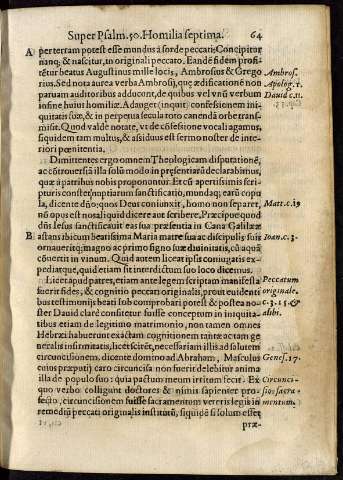 Super Psalm. 50. Homilia septima. 64
A pertertam potest esse mundus à sorde peccati: Concipitur
nanq; & nascitur, in originali peccato. Eandē fidem profi-
tētur beatus Augustinus mille locis, Ambrosius & Grego
rius. Sed nota aurea verba Ambrosij, quæ ædificationē non
paruam auditoribus adducent, de quibus vel vnū verbum
insine huius homiliæ. Adauget (inquit) confessionem ini-
quitatis suæ, & in perpetua secula toto canendā orbe trans-
misit. Quod valde notate, vt de cōfessione vocali agamus,
siquidem tam multus, & assiduus est sermo noster de inte-
riori pœnitentia.
Ambros.
Apolog. 1.
Dauid c. 11.
Dimittentes ergo omnem Theologicam disputationē,
ac cōtrouersiā illa solū modo in præsentiarū declarabimus,
quæ à patribus nobis proponuntur. Et cū apertissimis scri-
pturis constet cōnuptiarum sanctificatio, mundaq; earū copu
la, dicente dño; quos Deus coniunxit, homo non separet,
nō opus est nos aliquid dicere aut scribere. Præcipue quod
dñs Iesus sanctificauit eas sua præsentia in Cana Galilææ
B astans ibi cum beatissima Maria matre sua ac discipulis suis
ornaueritq; magno ac primo signo suæ diuinitatis, cū aquā
cōuertit in vinum. Quid autem liceat ipsis coniugatis ex-
pediatque, quid etiam sit interdictum suo loco dicemus.
Matt. c. 19
Ioan. c. 3.
Licet apud patres, etiam ante legem scriptam manifesta
fuerit fides, & cognitio peccati originalis, prout euidenti
bus testimonijs beati Iob comprobari potest & postea no-
ster Dauid clarè consitetur fuisse conceptum in iniquita-
tibus etiam de legitimo matrimonio, non tamen omnes
Hebræi habuerunt exactam cognitionem tantæ ac tam ge
neralis infirmitatis, licet scirēt, necessariam illis ad salutem
circuncisionem, dicente domino ad Abraham, Masculus
cuius præputij caro circuncisa non fuerit delebitur anima
illa de populo suo: quia pactum meum irritum fecit. Ex
quo verbo colligunt doctores & nimis sapienter pro-
fecto, circuncisionem fuisse sacramentum veteris legis in
remediū peccati originalis institutū, siquidē si solum esset
Peccatum
originale.
c. 3. 15. &
alibi.
Genes. 17.
Circunci-
sio sacra-
mentum.
præ-